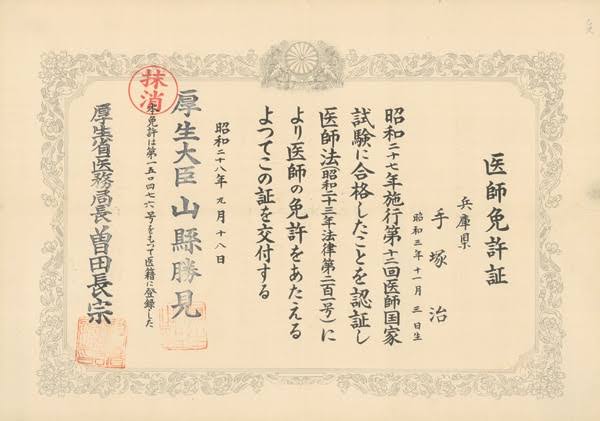 医師免許証
兵庫県
手塚治
昭和三年十一月三日生
昭和二十七年施行第十三回医師国家
試験に合格したことを認証し
医師法(昭和二十三年法律第二百一号)に
より医師の免許をあたえる
よつてこの証を交付する
昭和二十八年九月十八日
厚生大臣 山縣勝見
抹消
本免許は第一五〇四七六号をもつて医籍に登録した
厚生省医務局長 曽田長宗